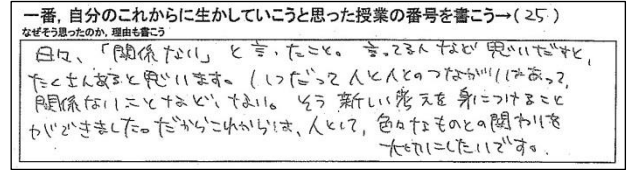 一番，自分のこれからに生かしていこうと思った授業の番号を書こう→（25）
なぜそう思ったのか，理由も書こう
日々、「関係ない」と言ったこと。言ってる人など思いだすと、
たくさんあると思います。いつだって人と人とのつながりはあって、
関係ないことなど、ない。そう新しい考えを身につけること
ができました。だからこれからは、人として、色々なものとの関わりを
大切にしたいです。